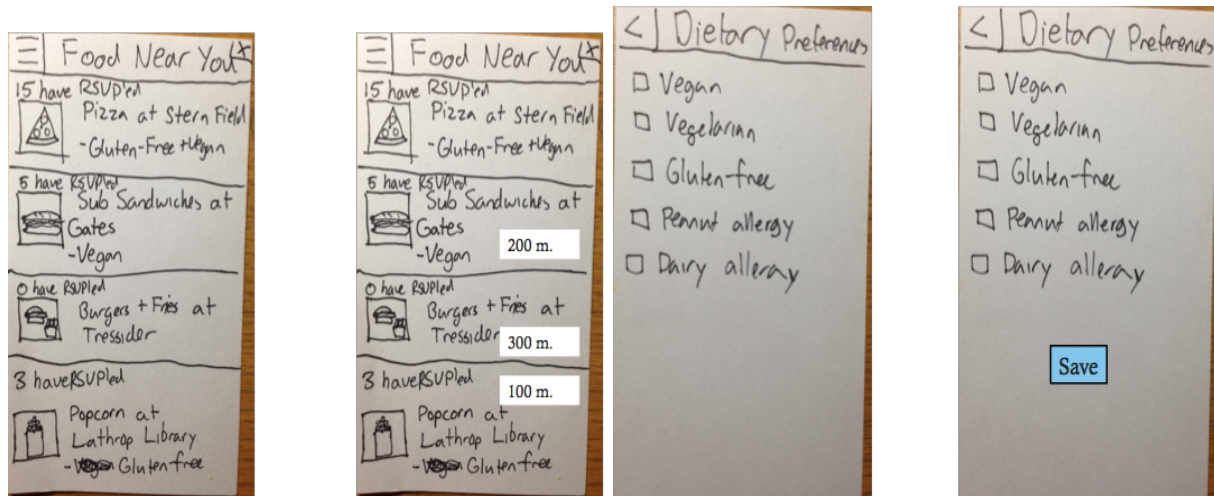 Food Near You
15 have RSVP'ed
Pizza at Stern Field
-Gluten-Free + Vegan
5 have RSVPled
Sub Sandwiches at
Gates
-Vegan
0 have RSVPled
Burgers + Fries at
Tressider
3 have RSVPled
Popcorn at
Lathrop Library
- Gluten free
Food Near You
15 have RSVP'ed
Pizza at Stern Field
-Gluten-Free + Vegan
5 have RSVPled
Sub Sandwiches at
Gates
-Vegan
200 m.
0 have RSVPled
Burgers + Fries at
Tressider
300 m.
3 have RSVPled
100 m.
Popcorn at
Lathrop Library
- Gluten free
< Dietary Preferences
Vegan
Vegetarian
Gluten-free
Peanut allergy
Dairy allergy
< Dietary Preferences
Vegan
Vegetarian
Gluten-free
Peanut allergy
Dairy allergy
Save